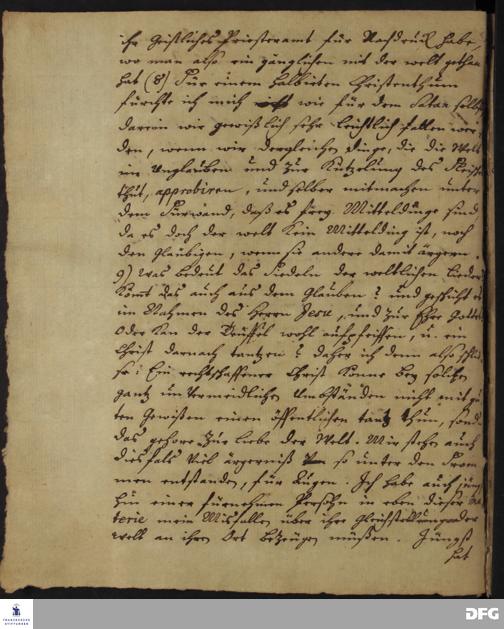 ihr Geistliches Priesteramt für Nachdruck habe,
wo man also ein gänzliches mit der welt gethan
hat (8) Für einem halbirten Christenthum
fürchte ich mich wie für dem Satan selbst
darein wir gewißlich sehr leichtlich fallen wer-
den, wenn wir dergleichen Dinge, die die Welt
im Unglauben und zur Kützelung des Fleisches
thut, approbiren, und selber mitmachen unter
dem Fürwand, daß es freye Mitteldinge sind
da es doch der welt kein Mittelding ist, noch
den Gläubigen, wenn sie andere damit ärgern.
9) Was bedeut das Fiedeln der weltlichen Lieder
Komt das auch aus dem Glauben? und geschicht es
im Nahmen des Herrn Jesu, und zur Ehre Gottes
Oder kan der Teuffel wohl aufpfeiffen, u. ein
Christ darnach tantzen? daher ich denn also schlie-
ße: Ein rechtschaffener Christ könne bey solchen
gantz unvermeidlichen Umbständen nicht mit gu-
ten Gewissen einen öffentlichen tantz thun, sond.
das gehöre zur Liebe der Welt. Mir stehen auch
diesfals viel ärgerniß so unter den From-
men entstanden, für Augen. Ich habe auch
hin einer fürnehmen Persohn in eben dieser Ma-
terie mein Misfallen über ihre Gleichstellung der
welt an ihrem Ort bezeugen müßen. Jüngst
hat
FRANCKESCHE
STIFTUNGEN
DFG